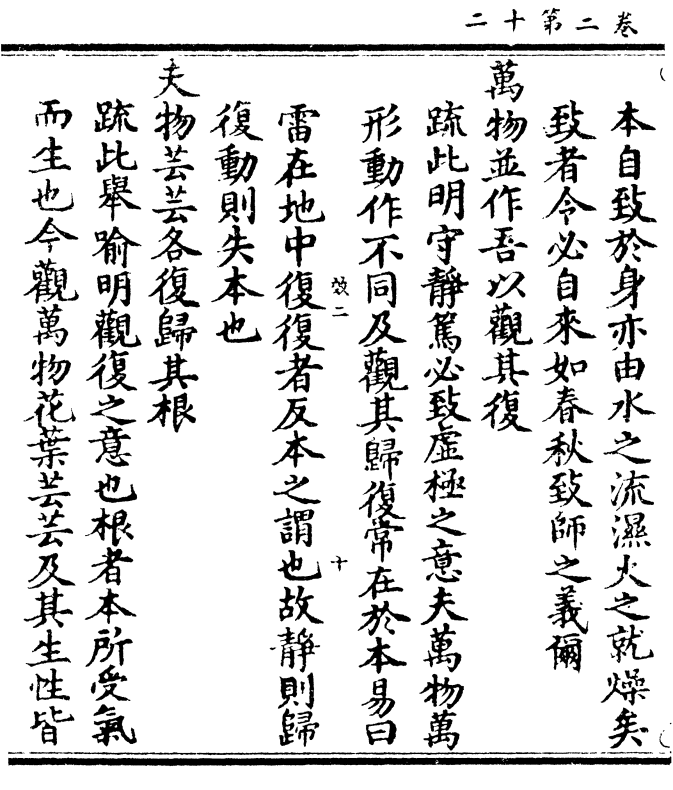 卷二第十二
本自致於身亦由水之流濕火之就燥矣
致者令必自來如春秋致師之義爾
萬物並作吾以觀其復
疏此明守靜篤必致虛極之意夫萬物萬
形動作不同及觀其歸復常在於本易曰
效二
十
雷在地中復復者反本之謂也故靜則歸
復動則失本也
夫物芸芸各復歸其根
疏此舉喻明觀復之意也根者本所受氣
而生也今觀萬物花葉芸芸及其生性皆